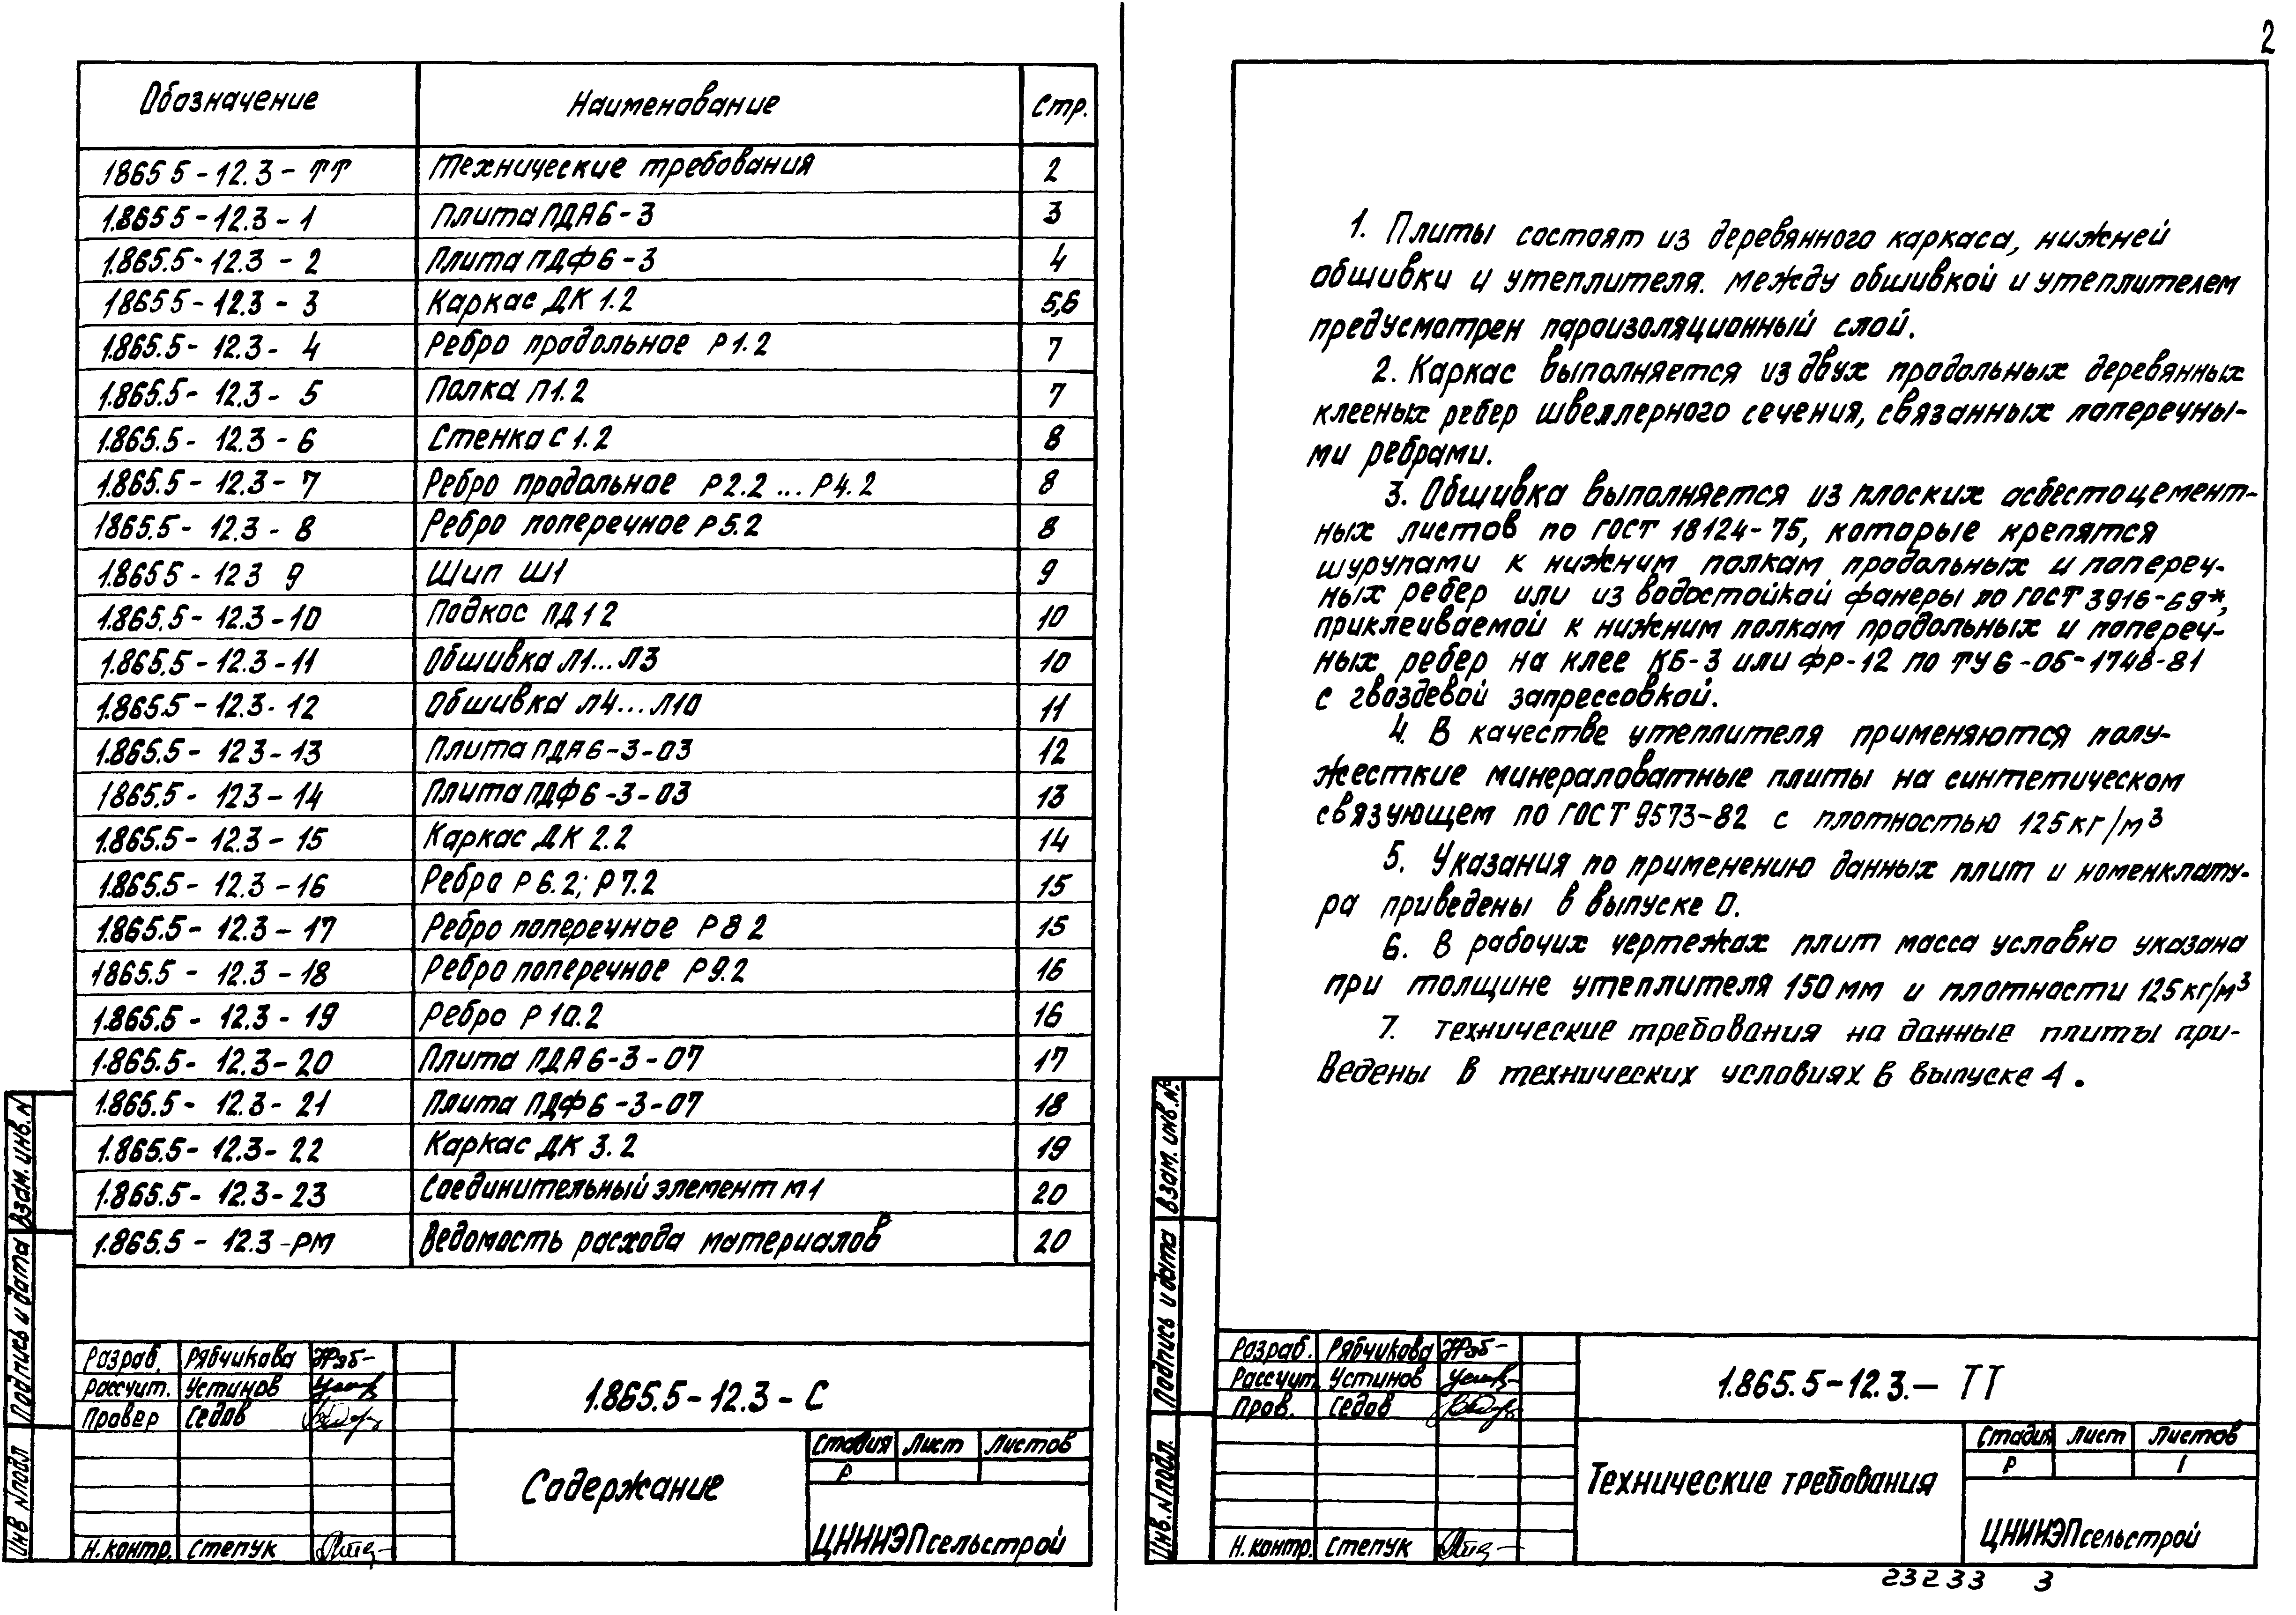 Обозначение Наименование Стр.
18655-12.3-ТТ Технические требования 2
1.8655-12.3-1 Плита ПДА6-3 3
1.865.5-12.3-2 Плита ПДФ6-3 4
18655-12.3-3 Каркас ДК 1.2 5,6
1.865.5-12.3-4 Ребро продольное Р1.2 7
1.865.5-12.3-5 Полка П1.2 7
1.865.5-12.3-6 Стенка С1.2 8
1.865.5-12.3-7 Ребро продольное Р2.2...Р4.2 8
1865.5-12.3-8 Ребро поперечное Р5.2 8
1.8655-123 9 Шип Ш1 9
1.865.5-12.3-10 Подкос ПД12 10
1.865.5-12.3-11 Обшивка Л1...Л3 10
1.865.5-12.3-12 Обшивка Л4...Л10 11
1.865.5-123-13 Плита ПДА6-3-03 12
1865.5-123-14 Плита ПДФ6-3-03 13
1.865.5-12.3-15 Каркас ДК 2.2 14
1.865.5-12.3-16 Ребра Р6.2; Р7.2 15
1.865.5-12.3-17 Ребро поперечное Р8 2 15
1865.5-12.3-18 Ребро поперечное Р9.2 16
1.865.5-12.3-19 Ребро Р10.2 16
1.865.5-12.3-20 Плита ПДА6-3-07 17
1.865.5-12.3-21 Плита ПДФ6-3-07 18
1.865.5-12.3-22 Каркас ДК 3.2 19
1.865.5-12.3-23 Соединительный элемент М1 20
1.865.5-12.3-РМ Ведомость расхода материалов 20
Взам. инв. N
Подпись и дата
Инв N подл
Разраб. Рябчикова
Рассчит. Устинов
Провер Седов
Н. контр. Степук
1.865.5-12.3-С
Содержание
Стадия Лист Листов
Р
ЦНИИЭПсельстрой
2
1. Плиты состоят из деревянного каркаса, нижней
обшивки и утеплителя. Между обшивкой и утеплителем
предусмотрен пароизоляционный слой.
2. Каркас выполняется из двух продольных деревянных
клееных ребер швеллерного сечения, связанных поперечны-
ми ребрами.
3. Обшивка выполняется из плоских асбестоцемент-
ных листов по ГОСТ 18124-75, которые крепятся
шурупами к нижним полкам продольных и попереч-
ных ребер или из водостойкой фанеры по ГОСТ 3916-69*,
приклеиваемой к нижним полкам продольных и попереч-
ных ребер на клее КБ-3 или ФР-12 по ТУ6-05-1748-81
с гвоздевой запрессовкой.
4. В качестве утеплителя применяются полу-
жесткие минераловатные плиты на синтетическом
связующем по ГОСТ 9573-82 с плотностью 125кг/м³
5. Указания по применению данных плит и номенклату-
ра приведены в выпуске 0.
6. В рабочих чертежах плит масса условно указана
при толщине утеплителя 150 мм и плотности 125кг/м³
7. Технические требования на данные плиты при-
ведены в технических условиях в выпуске 4.
Взам. инв. N
Подпись и дата
Инв. N подл.
Разраб. Рябчикова
Рассчит. Устинов
Пров. Седов
Н. контр. Степук
1.865.5-12.3.-ТТ
Технические требования
Стадия Лист Листов
Р 1
ЦНИИЭПсельстрой
23233 3